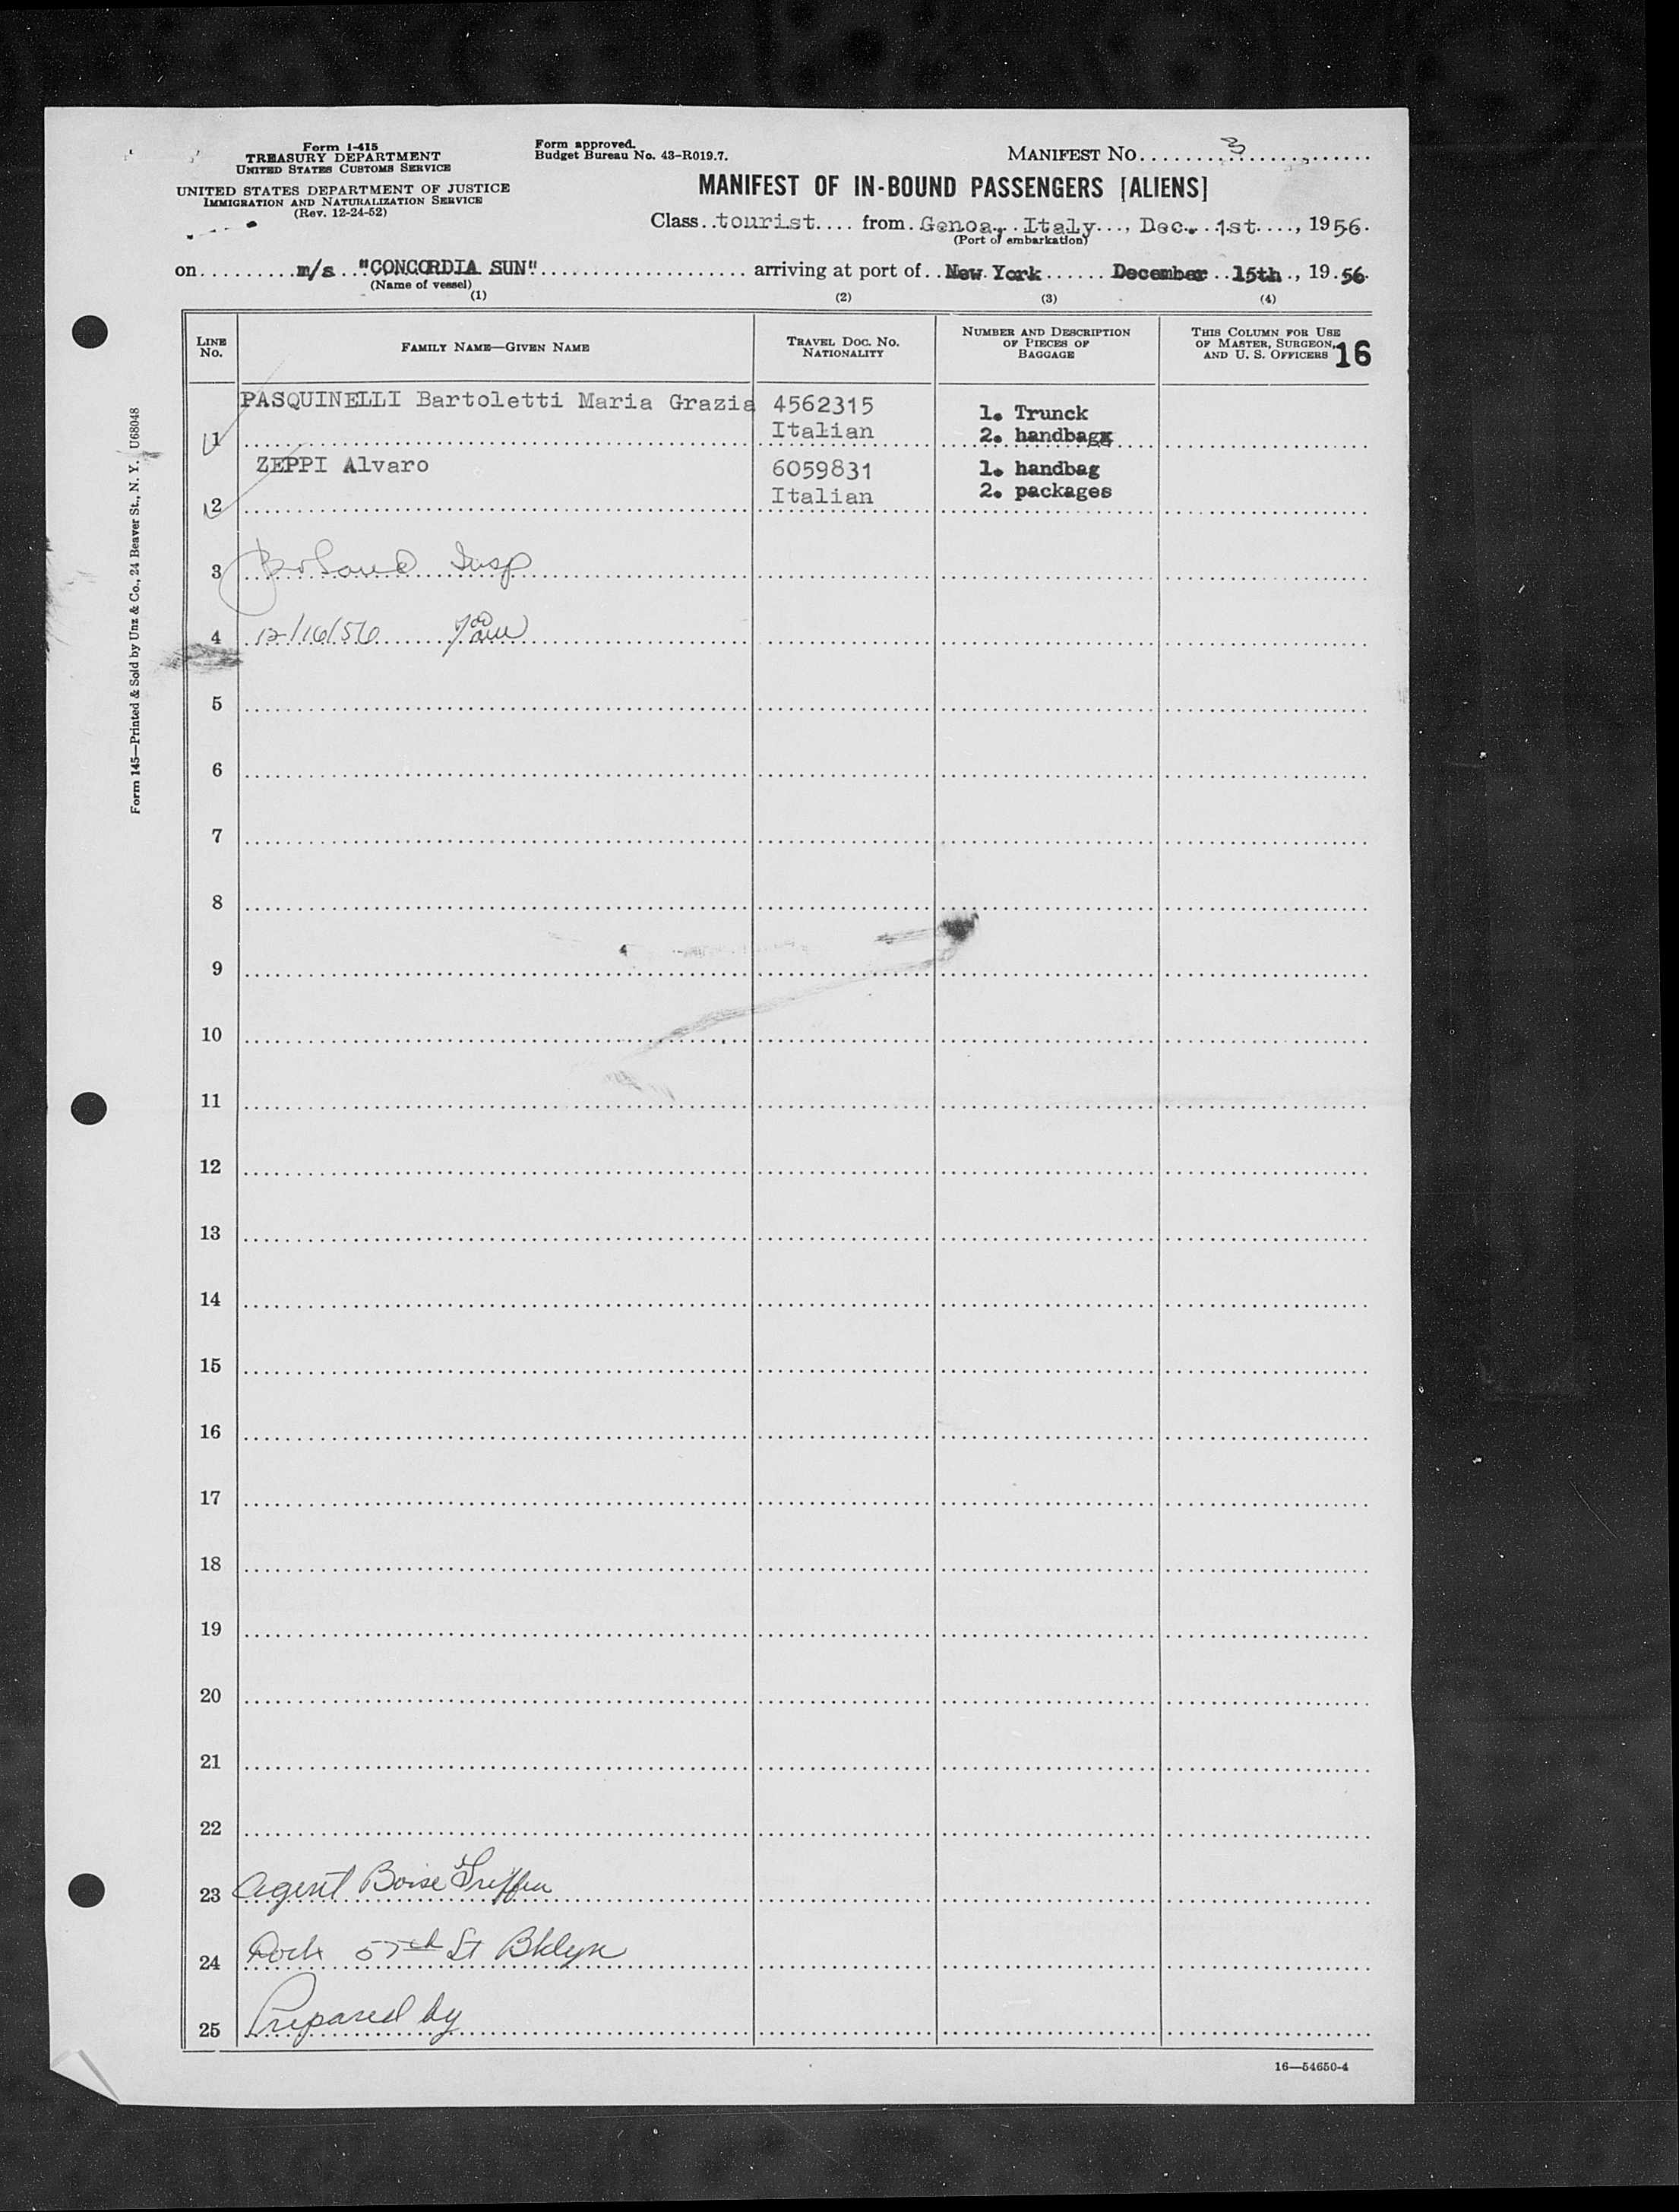 Form I-415
TREASURY DEPARTMENT
UNITED STATES CUSTOMS SERVICE
UNITED STATES DEPARTMENT OF JUSTICE
IMMIGRATION AND NATURALIZATION SERVICE
(Rev. 12-24-52)
Form approved.
Budget Bureau No. 43-R019.7.
MANIFEST NO. 3
MANIFEST OF IN-BOUND PASSENGERS [ALIENS]
Class tourist from Genoa, Italy, Dec. 1st, 1956.
(Port of embarkation)
on m/s "CONCORDIA SUN" arriving at port of New York December 15th, 19 56.
(Name of vessel)
(1) (2) (3) (4)
LINE NO. FAMILY NAME—GIVEN NAME TRAVEL DOC. NO. NATIONALITY NUMBER AND DESCRIPTION OF PIECES OF BAGGAGE THIS COLUMN FOR USE OF MASTER, SURGEON, AND U. S. OFFICERS 16
PASQUINELLI Bartoletti Maria Grazia 4562315 1. Trunck
1 Italian 2. handbagx
ZEPPI Alvaro 6059831 1. handbag
2 Italian 2. packages
3 Insp
4 12/16/56
5
6
7
8
9
10
11
12
13
14
15
16
17
18
19
20
21
22
23 Agent Boise Griffin
24 Dock 57th St Bklyn
25 Prepared by
16—54650-4
Form 145—Printed & Sold by Unz & Co., 24 Beaver St., N. Y. U68048